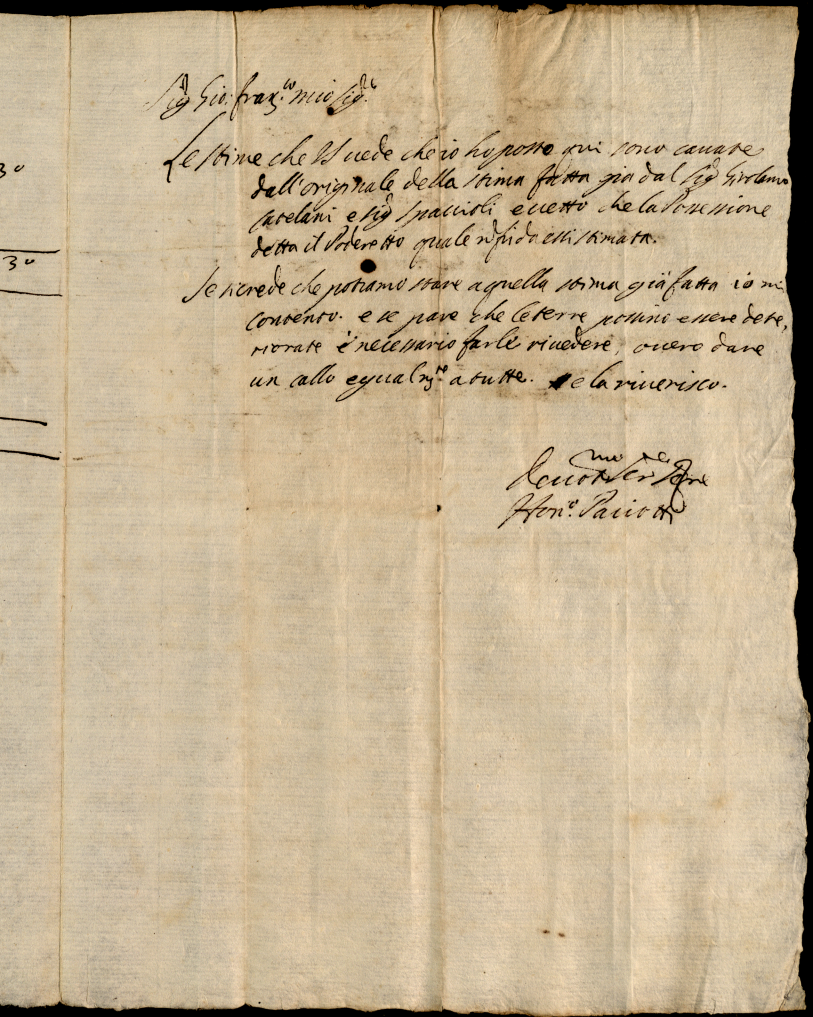 30
30
Sig. Gio: Franc.co mio Sig.re
Le stime che VS uede che io ho poste qui sono cauate
dall'originale della stima fatta gia dal Sig. Girolamo
Catelani e Sig. Spaccioli eccetto che la Possessione
detta il Poderetto quale stimata.
Se si crede che potiamo stare a quella stima già fatta io mi
contento. e se pare che le terre possino essere dete,
riorate è necessario farle riuedere, ouero dare
un callo egualm.te a tutte. e la riuerisco.
Deuot.mo Ser.re
Hon.o Paciotti